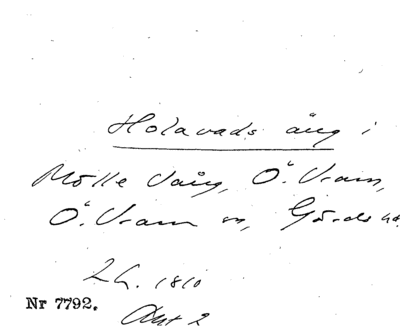 Holavads äng i
Mölle Vång, Ö. Vram,
Ö. Vram sn, Gärds hd.
LL. 1810
Nr 7792. Akt 2